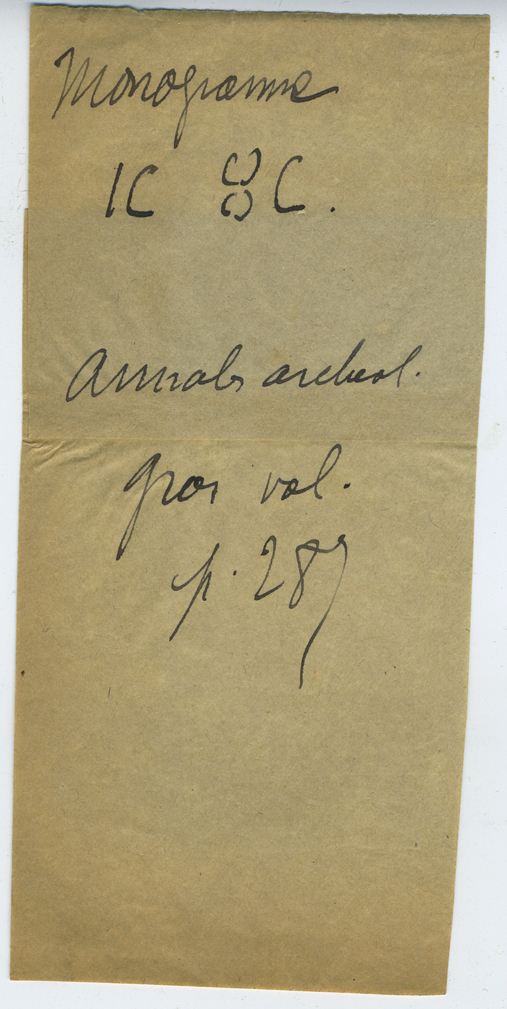 Monogramme
IC XC.
Annales archeol.
gros vol.
p. 287